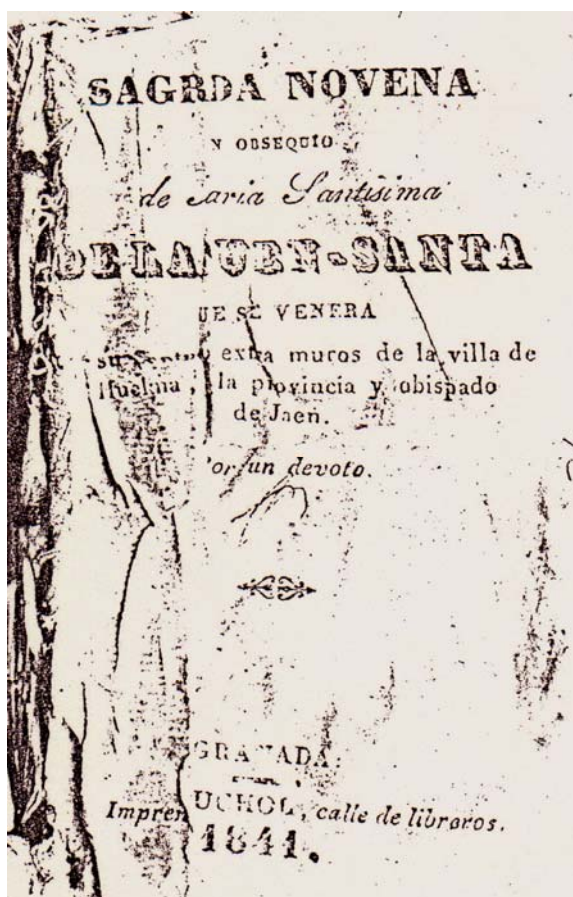 SAGRDA NOVENA
N OBSEQUIO
de aria Santisima
DE LA UEN-SANTA
UE SE VENERA
su extra muros de la villa de
Huelma, la provincia y obispado
de Jaen.
Por un devoto.
GRANADA:
Impren UCHOL, calle de libreros.
1841.